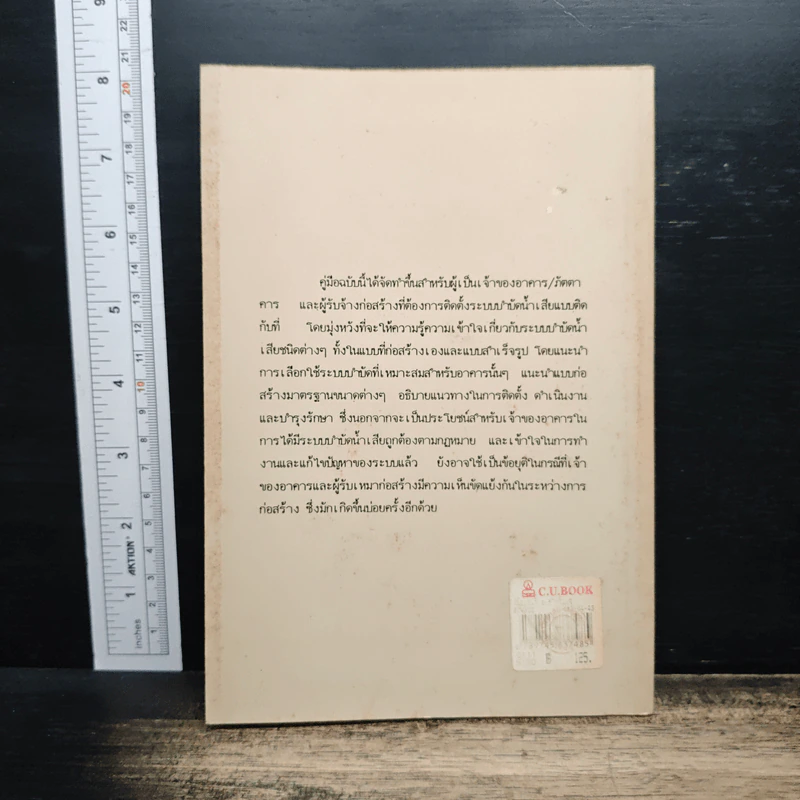 คู่มือฉบับนี้ได้จัดทำขึ้นสำหรับผู้เป็นเจ้าของอาคาร/ภัตตา
คาร และผู้รับจ้างก่อสร้างที่ต้องการติดตั้งระบบบำบัดน้ำเสียแบบติด
กับที่ โดยมุ่งหวังที่จะให้ความรู้ความเข้าใจเกี่ยวกับระบบบำบัดน้ำ
เสียชนิดต่างๆ ทั้งในแบบที่ก่อสร้างเองและแบบสำเร็จรูป โดยแนะนำ
การเลือกใช้ระบบบำบัดที่เหมาะสมสำหรับอาคารนั้นๆ แนะนำแบบก่อ
สร้างมาตรฐานขนาดต่างๆ อธิบายแนวทางในการติดตั้ง ดำเนินงาน
และบำรุงรักษา ซึ่งนอกจากจะเป็นประโยชน์สำหรับเจ้าของอาคารใน
การได้มีระบบบำบัดน้ำเสียถูกต้องตามกฎหมาย และเข้าใจในการทำ
งานและแก้ไขปัญหาของระบบแล้ว ยังอาจใช้เป็นข้อยุติในกรณีที่เจ้า
ของอาคารและผู้รับเหมาก่อสร้างมีความเห็นขัดแย้งกันในระหว่างการ
ก่อสร้าง ซึ่งมักเกิดขึ้นบ่อยครั้งอีกด้วย
C.U.BOOK
฿ 125.
9 22
21
8 20
19
18
7
17
16
6 15
14
5 13
12
11
4 10
9
8
3
7
6
2 5
AKTION
4
1 3
2
inches 1